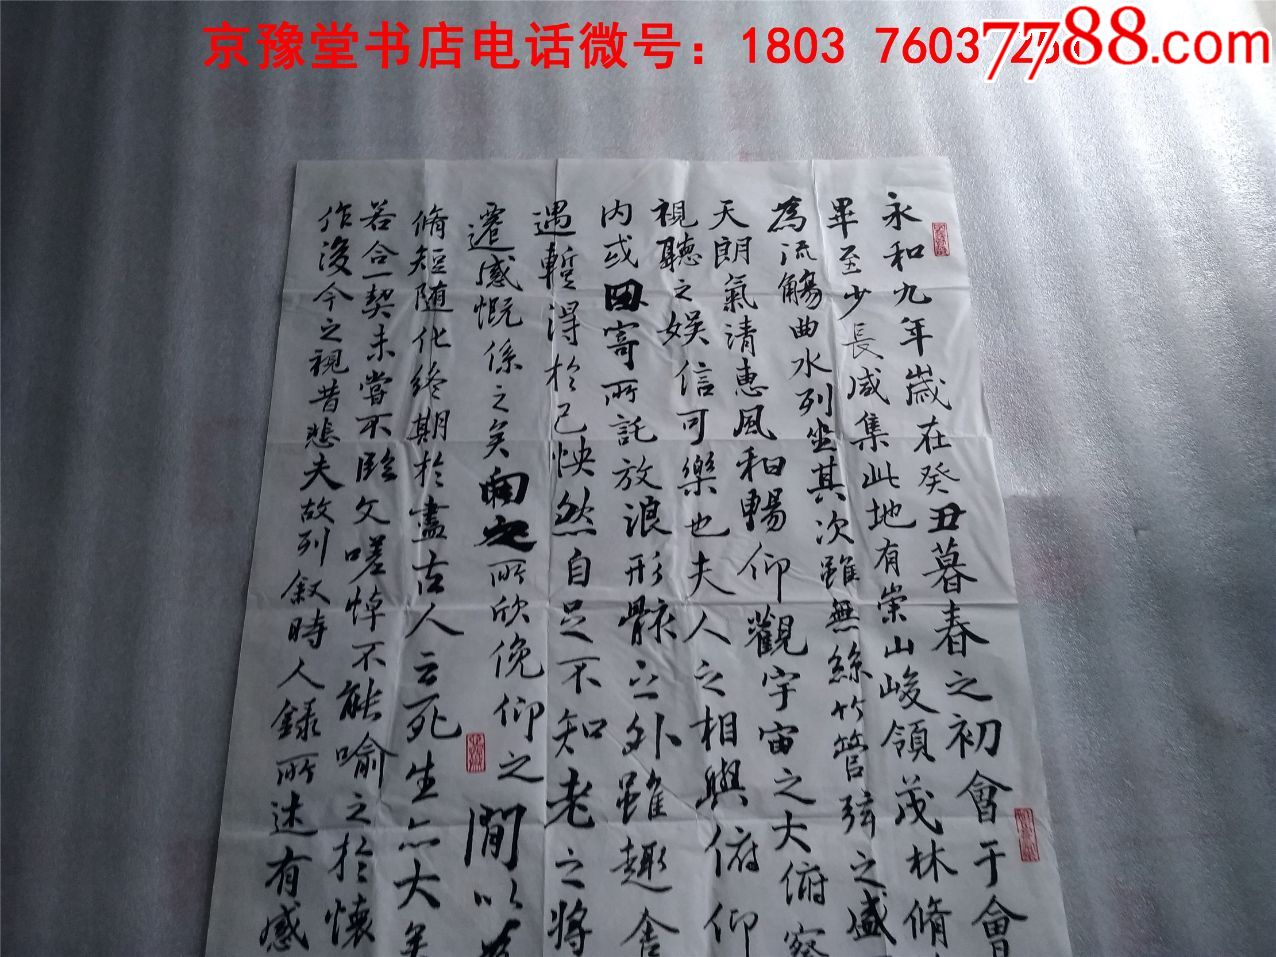 京豫堂书店电话微号：1803 7603
7788.com
永和九年歲在癸丑暮春之初會于會
畢至少長咸集此地有崇山峻領茂林脩
為流觴曲水列坐其次雖無絲竹管弦之盛
天朗氣清惠風和暢仰觀宇宙之大俯察
視聽之娱信可樂也夫人之相與俯仰
内或因寄所託放浪形骸之外雖趣舍
遇蹔得於己怏然自足不知老之將
遷感慨係之矣向之所欣俛仰之間以為
脩短随化終期於盡古人云死生亦大矣
若合一契未嘗不臨文嗟悼不能喻之於懷
作後今之視昔悲夫故列叙時人録所述有感